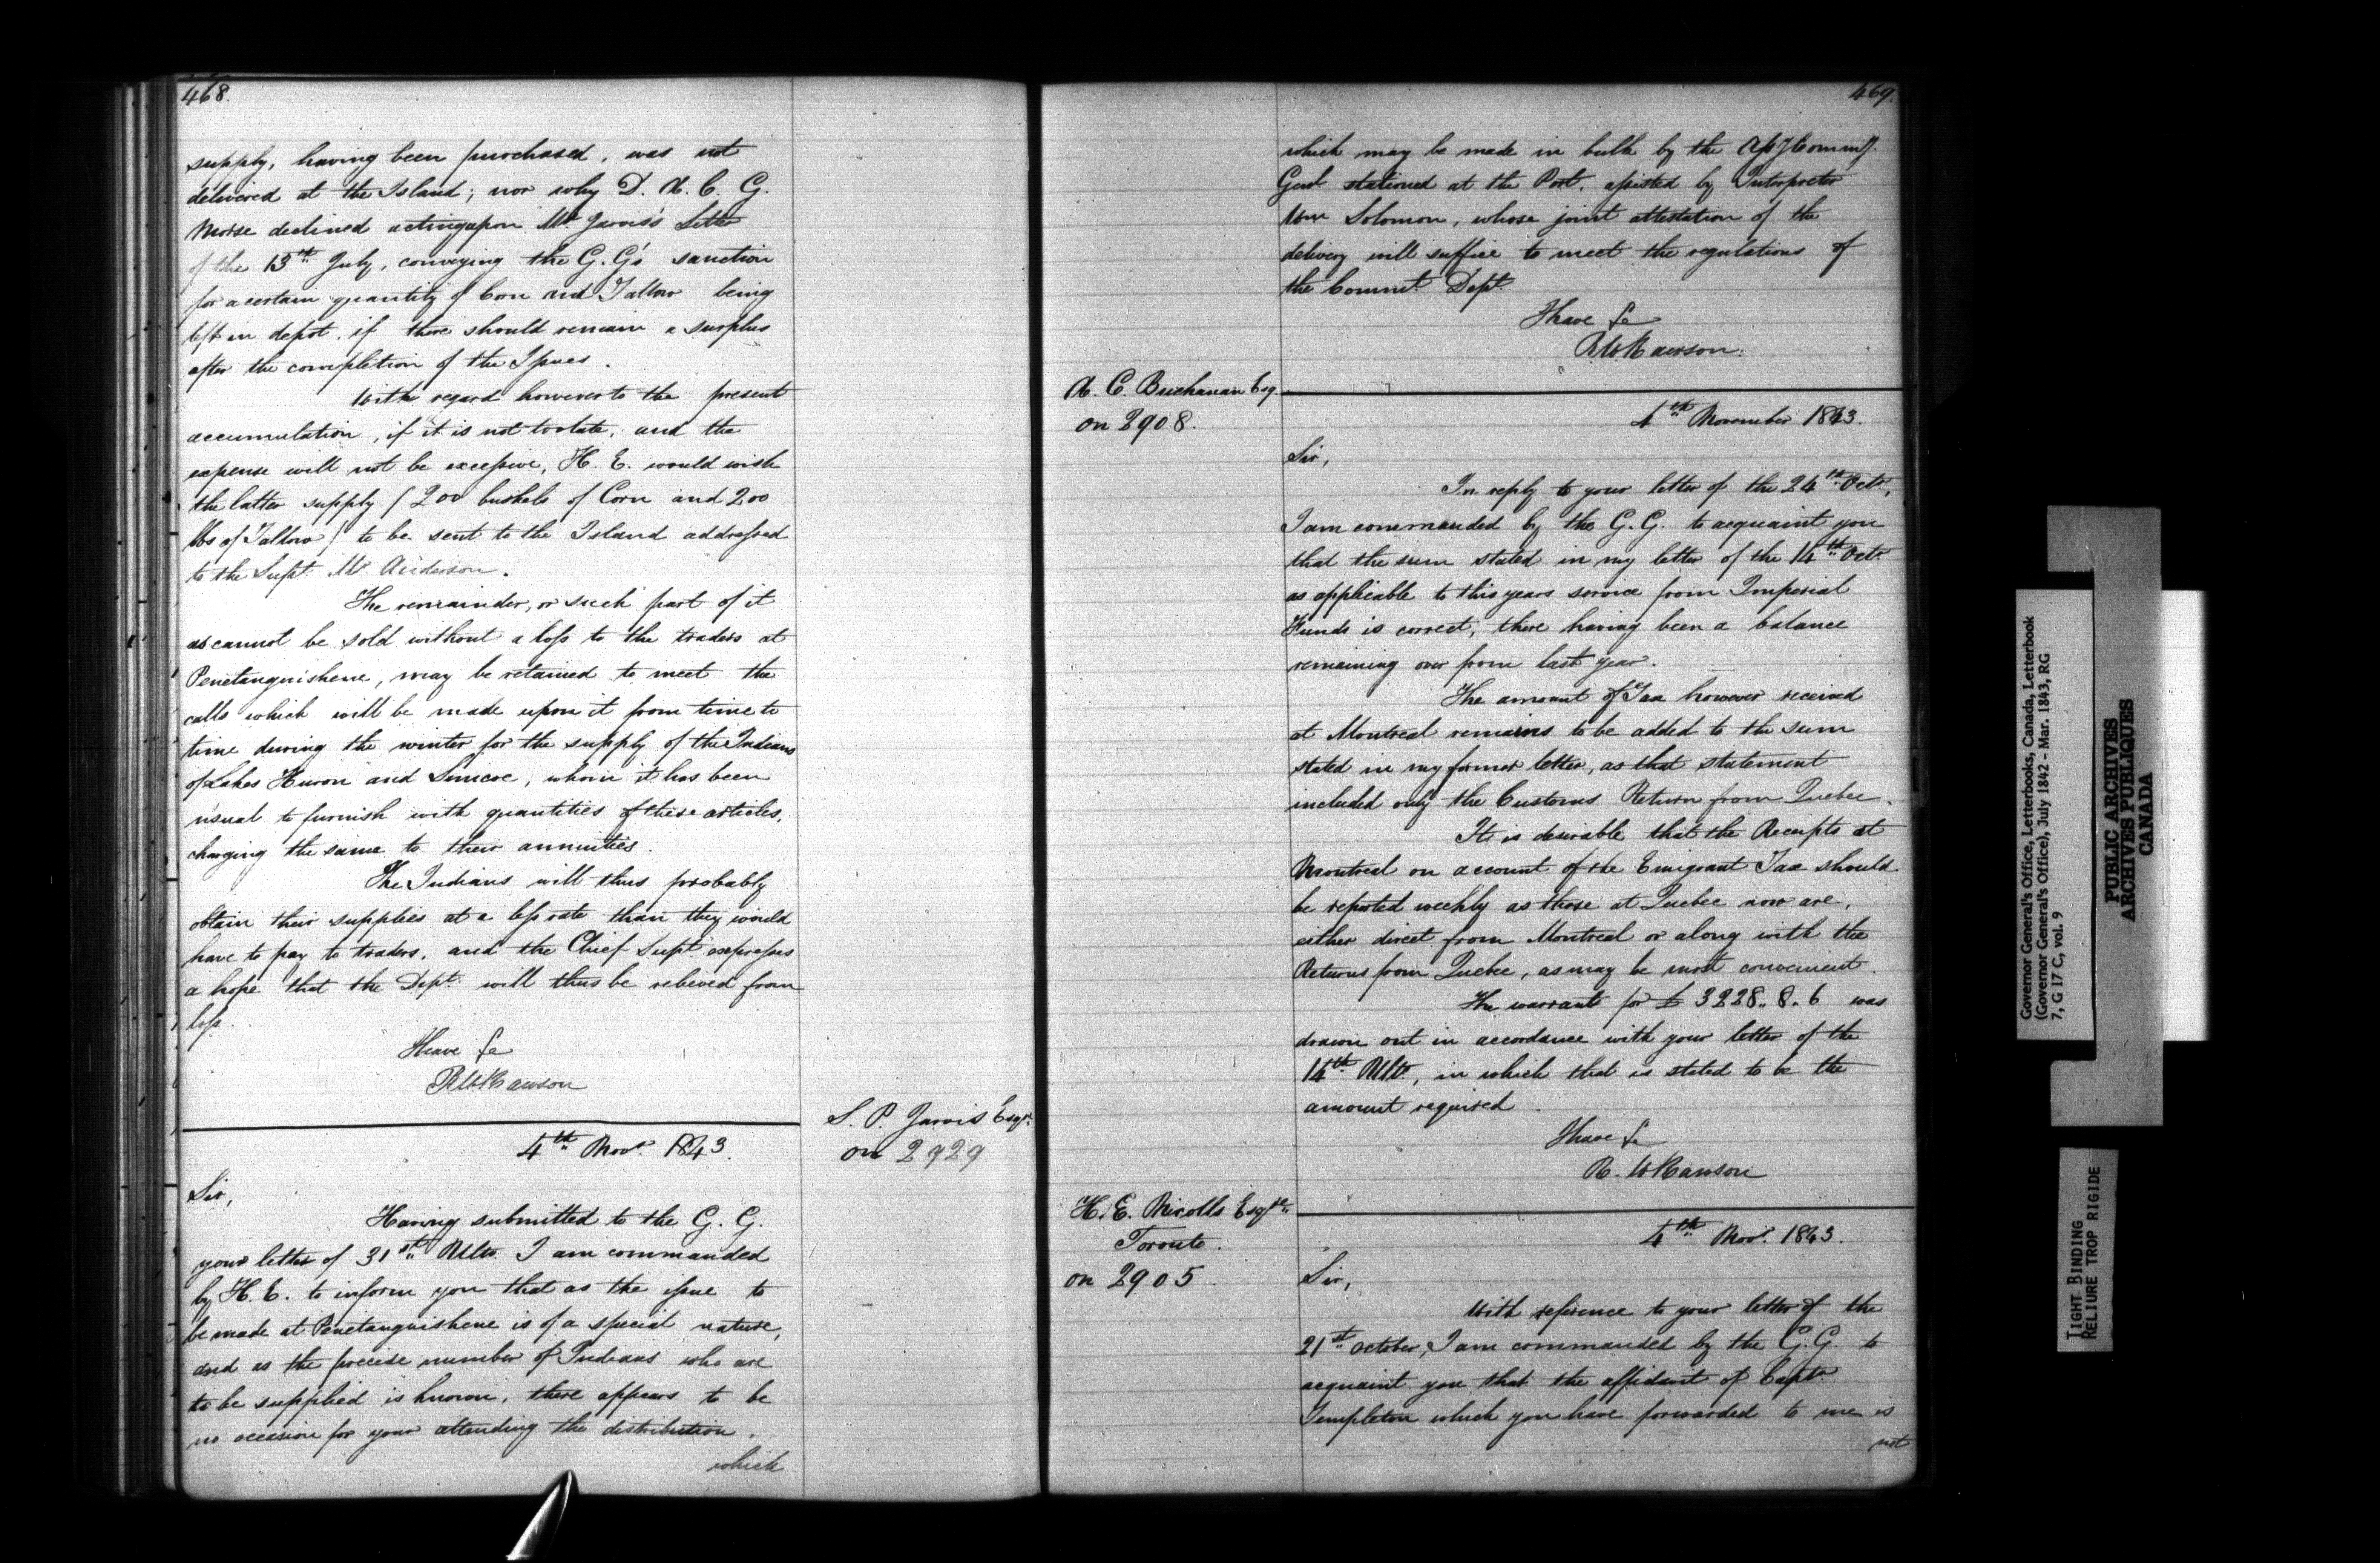 468.
supply, having been purchased, was not
delivered at the Island; nor why D. A. C. G.
Morse declined acting upon Mr. Jarvis's Letter
of the 13th July, conveying the G. G's sanction
for a certain quantity of Corn and Tallow being
left in depot, if there should remain a surplus
after the completion of the Issues.
With regard however to the present
accumulation, if it is not too late, and the
expense will not be excessive, H. E. would wish
the latter supply (200 bushels of Corn and 200
lbs of Tallow) to be sent to the Island addressed
to the Supt. Mr. Anderson.
The remainder, or such part of it
as cannot be sold without a loss to the traders at
Penetanguishene, may be retained to meet the
calls which will be made upon it from time to
time during the winter for the supply of the Indians
of Lakes Huron and Simcoe, whom it has been
usual to furnish with quantities of these articles,
charging the same to their annuities.
The Indians will thus probably
obtain their supplies at a less rate than they would
have to pay to traders, and the Chief Supt. expresses
a hope that the Dept. will thus be relieved from
loss.
I have &c
R W Rawson
S. P. Jarvis Esqr.
on 2929
4th Novr. 1843.
Sir,
Having submitted to the G. G.
your letter of 31st Ulto. I am commanded
by H. E. to inform you that as the issue to
be made at Penetanguishene is of a special nature,
and as the precise number of Indians who are
to be supplied is known, there appears to be
no occasion for your attending the distribution,
which
469.
which may be made in bulk by the Asst Commy.
Genl. stationed at the Post, assisted by Interpreter
Wm Solomon, whose joint attestation of the
delivery will suffice to meet the regulations of
the Commt. Dept.
I have &c
R. W. Rawson.
A. C. Buchanan Esq.
on 2908.
4th November 1843.
Sir,
In reply to your letter of the 24th Octr.,
I am commanded by the G. G. to acquaint you
that the sum stated in my letter of the 14th Octr.
as applicable to this years service from Imperial
Funds is correct, there having been a balance
remaining over from last year.
The amount of Tax however received
at Montreal remains to be added to the sum
stated in my former letter, as that statement
included only the Customs Return from Quebec.
It is desirable that the Receipts at
Montreal on account of the Emigrant Tax should
be reported weekly as those at Quebec now are,
either direct from Montreal or along with the
Returns from Quebec, as may be most convenient.
The warrant for £3228. 8. 6 was
drawn out in accordance with your letter of the
14th Ulto., in which that is stated to be the
amount required.
I have &c
R. W Rawson
H. E. Nicolls Esqre.
Toronto.
on 2905.
4th Novr. 1843.
Sir,
With reference to your letter of the
21st October, I am commanded by the G. G. to
acquaint you that the affidavit of Captn
Templeton which you have forwarded to me is
not
Governor General's Office, Letterbooks, Canada, Letterbook
(Governor General's Office), July 1842 - Mar. 1843, RG
7, G 17 C, vol. 9
PUBLIC ARCHIVES
ARCHIVES PUBLIQUES
CANADA
TIGHT BINDING
RELIURE TROP RIGIDE